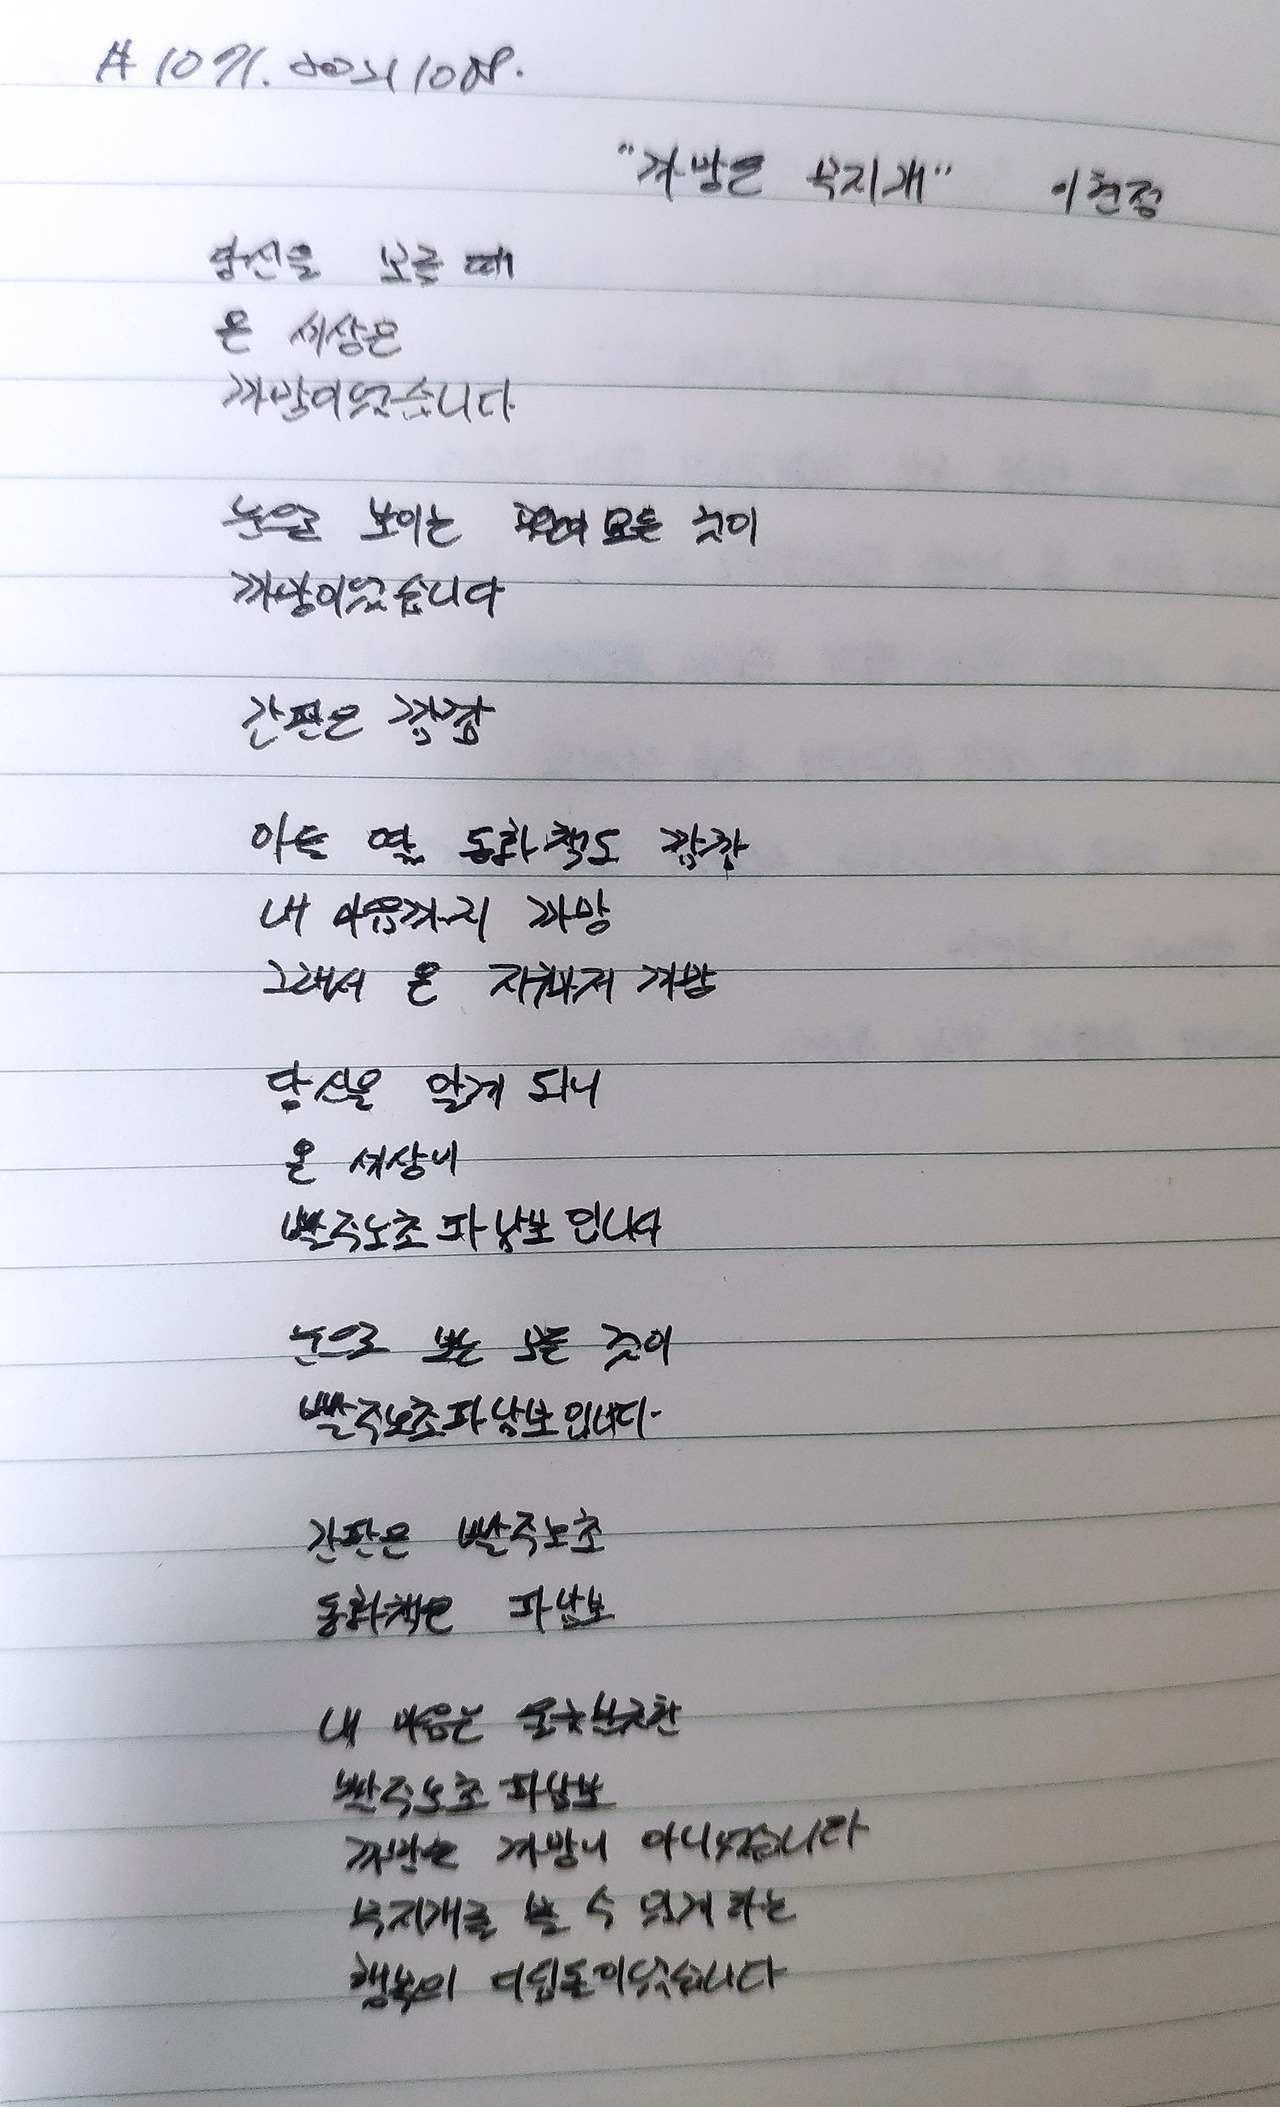 "까망은 무지개" 이현정
당신을 모를 때
온 세상은
까망이었습니다
눈으로 보이는 모든 것이
까망이었습니다
간판은 깜깜
아들 옆 동화책도 깜깜
내 마음까지 까망
그래서 온 까망
당신을 알게 되니
온 세상이
빨주노초파남보 입니다
눈으로 보는 모든 것이
빨주노초파남보입니다.
간판은 빨주노초
동화책은 파남보
내 마음은 울긋불긋한
빨주노초파남보
까망은 까망이 아니었습니다
무지개를 볼 수 있게 하는
행복의 디딤돌이었습니다